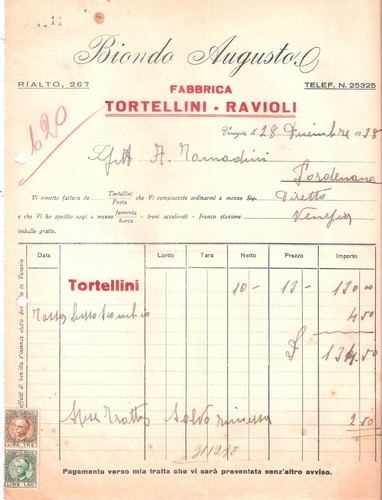 11
Biondo Augusto
RIALTO, 267
TELEF. N. 25325
FABBRICA
TORTELLINI - RAVIOLI
620
Venezia, li 28 Dicembre 1938
A. Tamadini
Pordenone
Vi rimetto fattura de Tortellini Pasta che Vi compiaceste ordinarmi a mezzo Sig. Diretto
e che Vi ho spedito oggi a mezzo ferrovia barca - treni accelerati - franco stazione Venezia
imballo gratis.
Data Lordo Tara Netto Prezzo Importo
Tortellini 10 - 13 - 130.00
Tassa Scambio 4.50
134.50
Spese Tratta Salvo rimessa 2.50
31/12/38
LIRE TRE
LIRE 1,50
Pagamento verso mia tratta che vi sarà presentata senz'altro avviso.